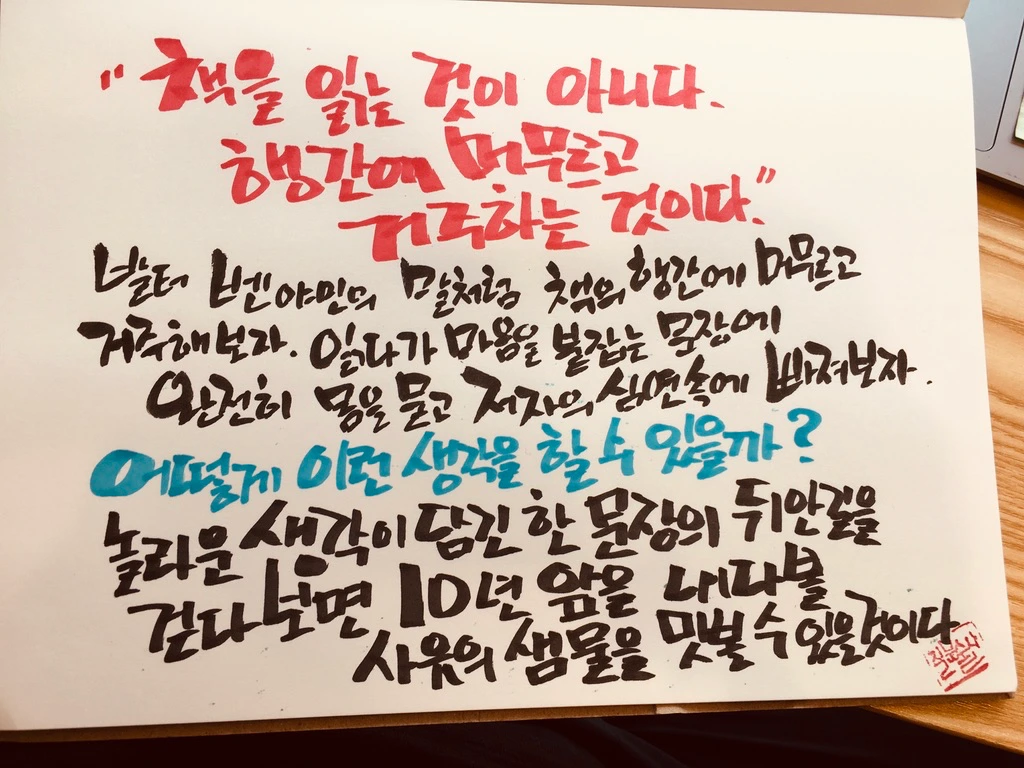 "책을 읽는 것이 아니다.
행간에 머무르고
거주하는 것이다."
발터 벤야민의 말처럼 책의 행간에 머무르고
거주해보자. 읽다가 마음을 붙잡는 문장에
완전히 몸을 묻고 저자의 심연속에 빠져보자.
어떻게 이런 생각을 할 수 있을까?
놀라운 생각이 담긴 한 문장의 뒤안길을
걷다보면 10년 앞을 내다볼
사유의 샘물을 맛볼 수 있을것이다